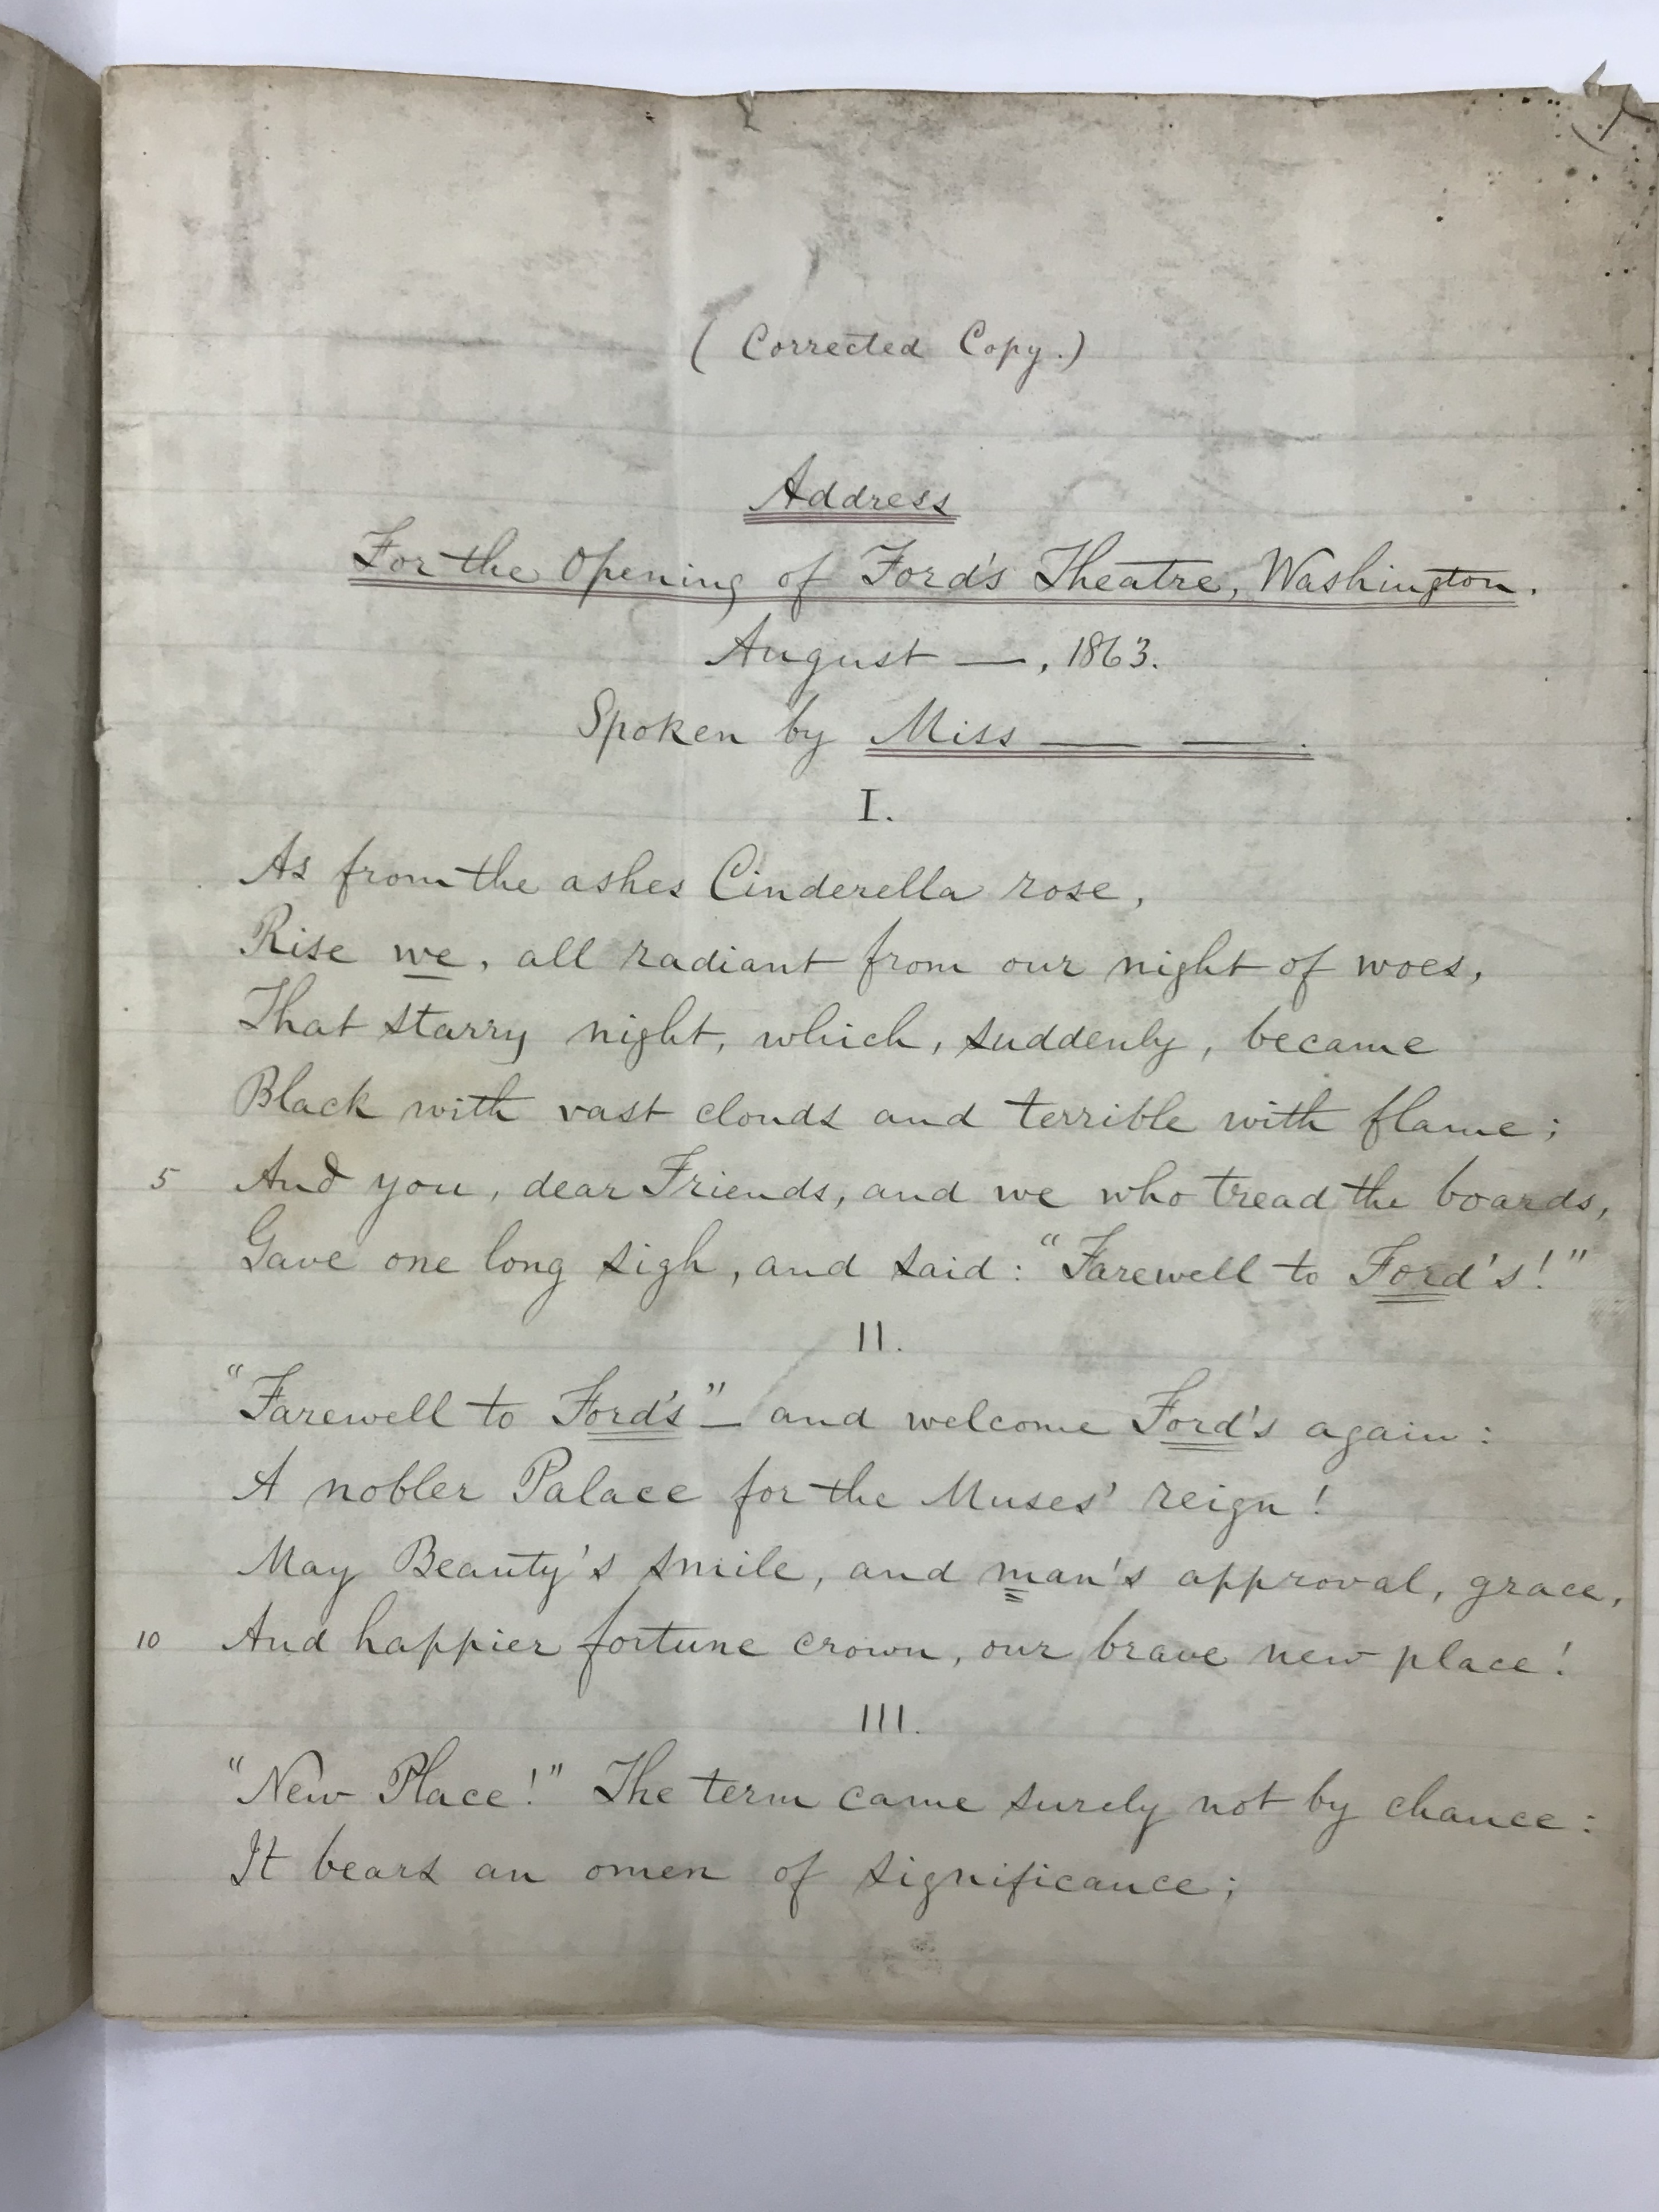 ( Corrected Copy. )
Address
For the Opening of Ford's Theatre, Washington.
August —, 1863.
Spoken by Miss — — .
I.
As from the ashes Cinderella rose,
Rise we, all radiant from our night of woes,
That starry night, which, suddenly, became
Black with vast clouds and terrible with flame;
5 And you, dear Friends, and we who tread the boards,
Gave one long sigh, and said: "Farewell to Ford's!"
II.
"Farewell to Ford's" — and welcome Ford's again:
A nobler Palace for the Muses' reign!
May Beauty's smile, and man's approval, grace,
10 And happier fortune crown, our brave new place!
III.
"New Place!" The term came surely not by chance:
It bears an omen of significance;